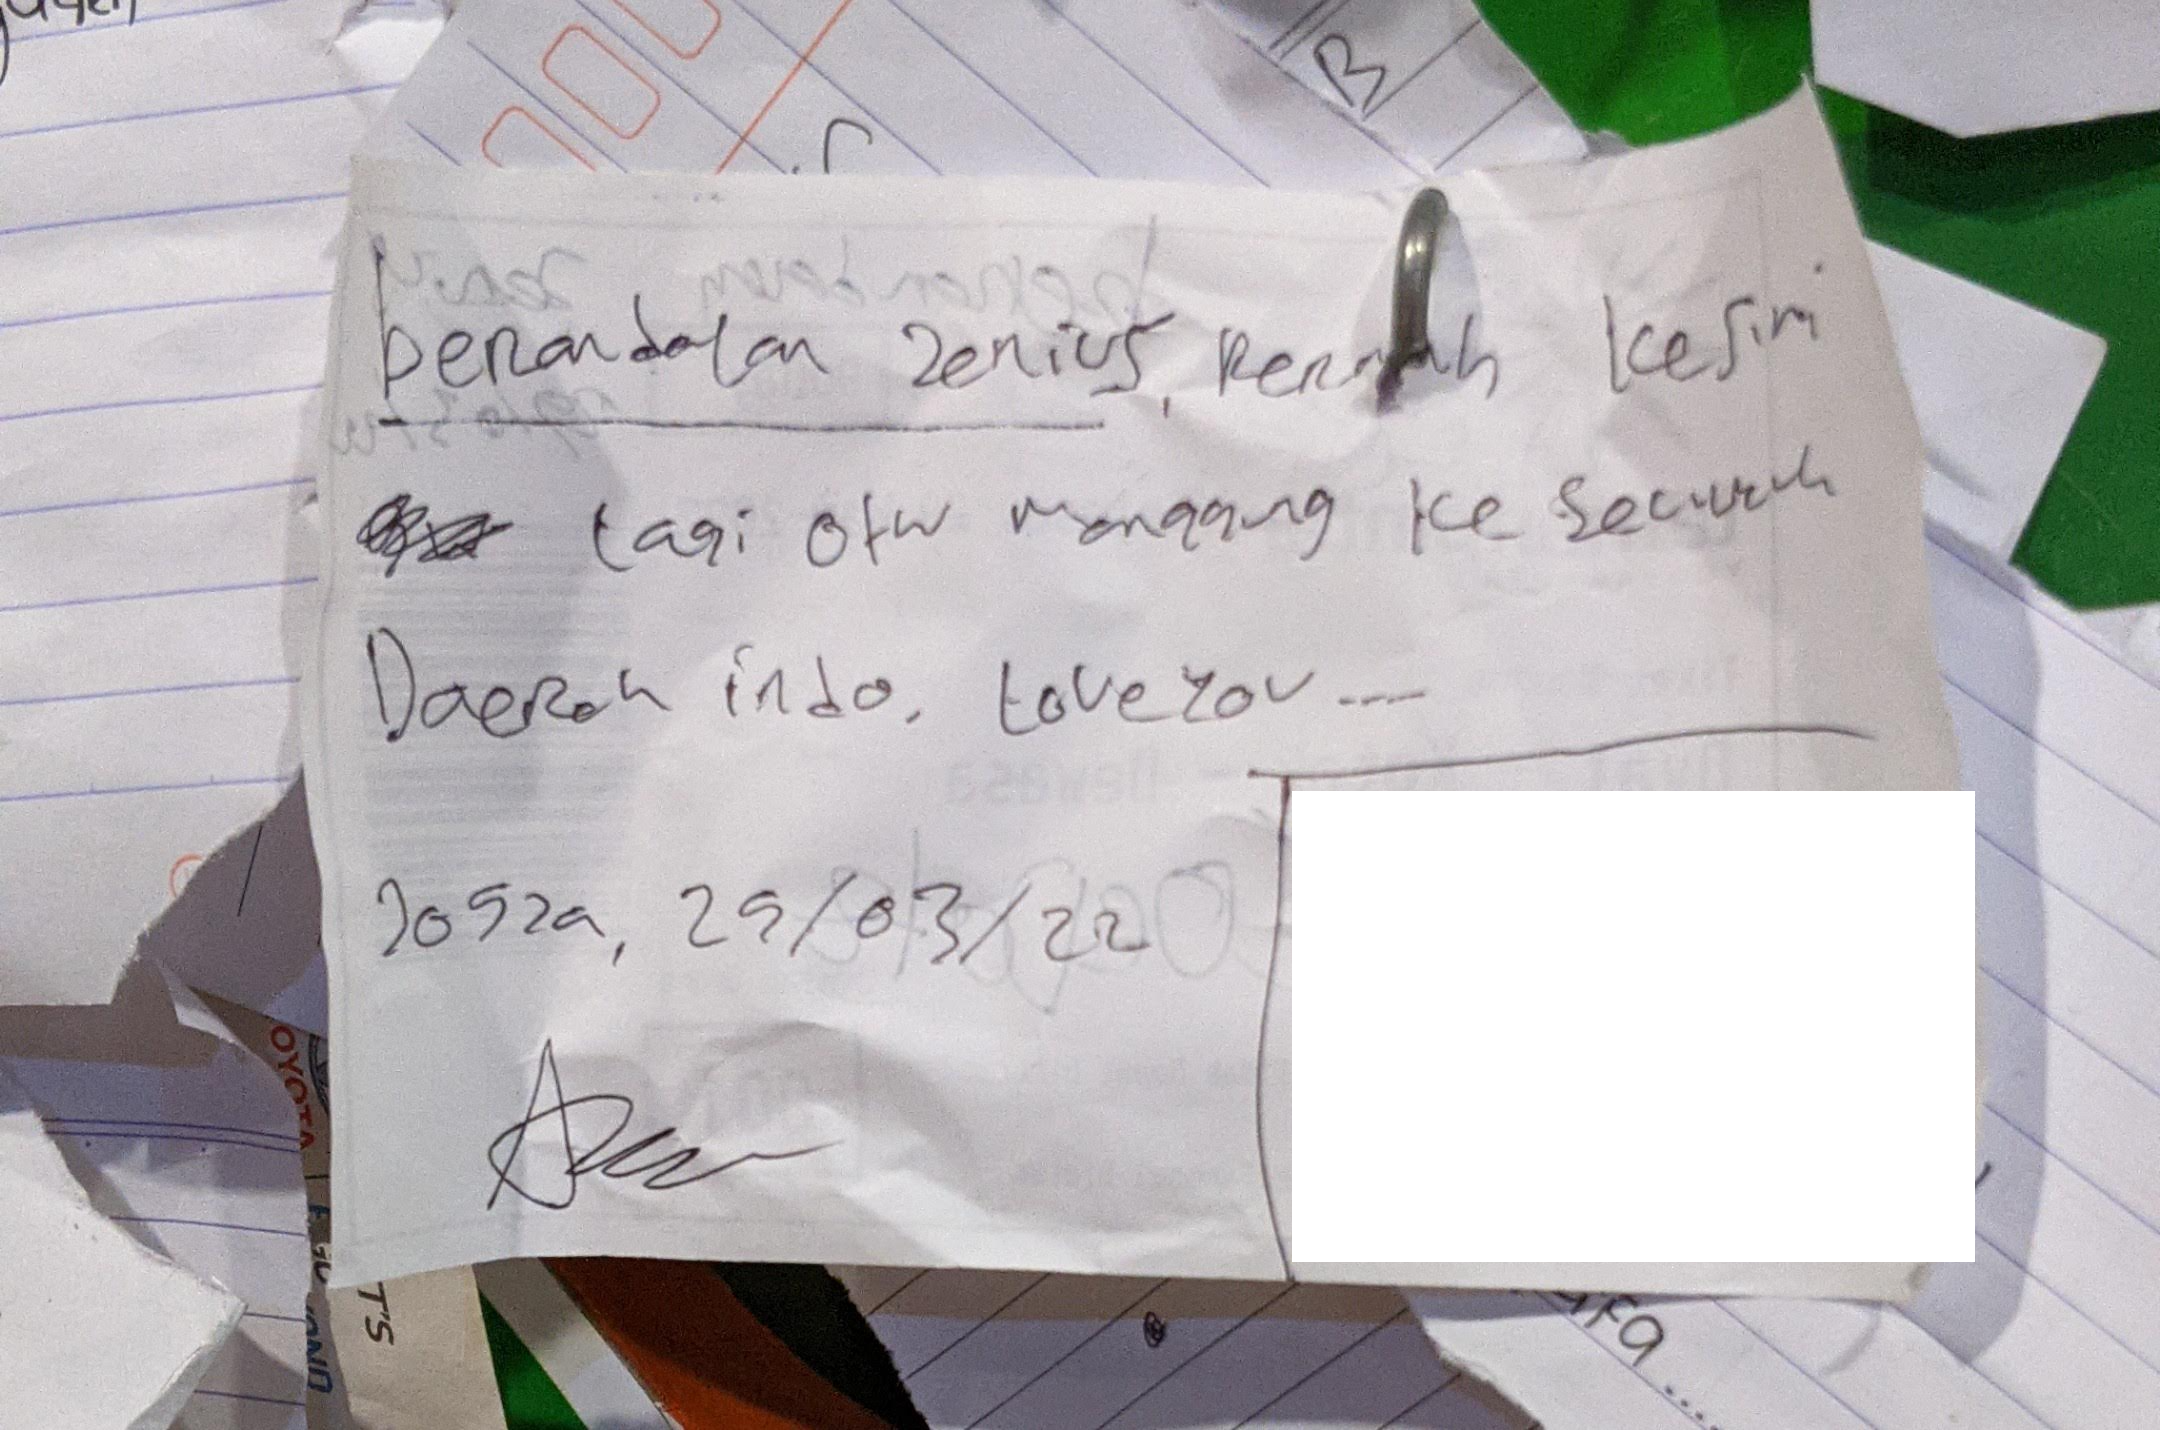 berandalan zenius, Pernah kesini
lagi otw manggung ke Seluruh
Daerah indo. Love you ----
Jogja, 29/03/22
B
OYOTA
T'S